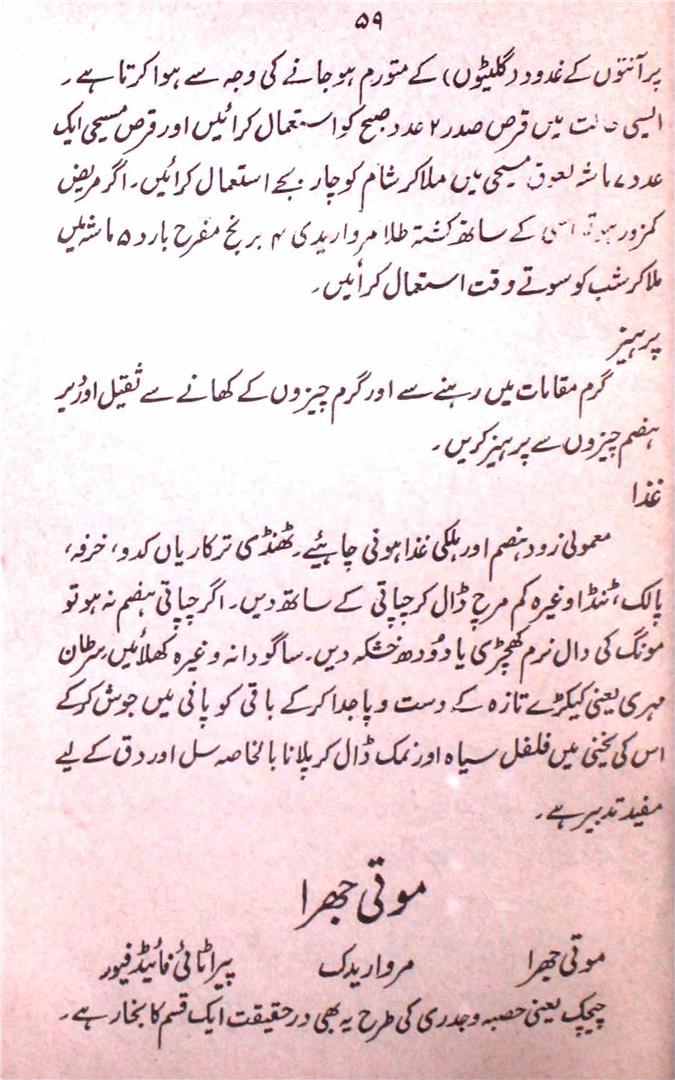 ۵۹
پر آنتوں کے غدود (گلیٹوں) کے متورم ہو جانے کی وجہ سے ہوا کرتا ہے۔
ایسی حالت میں قرص صدر ۲ عدد صبح کو استعمال کرائیں اور قرص مسیحی ایک
عدد ۷ ماشہ لعوق مسیحی میں ملا کر شام کو چار بجے استعمال کرائیں۔ اگر مریض
کمزور ہو تو اسی کے ساتھ کشتہ طلا مرواریدی ۴ برنج مفرح بارد ۵ ماشہ میں
ملا کر شب کو سوتے وقت استعمال کرائیں۔
پرہیز
گرم مقامات میں رہنے سے اور گرم چیزوں کے کھانے سے ثقیل اور دیر
ہضم چیزوں سے پرہیز کریں۔
غذا
معمولی زود ہضم اور ہلکی غذا ہونی چاہیئے۔ ٹھنڈی ترکاریاں کدو، خرفہ،
پالک، ٹنڈا وغیرہ کم مرچ ڈال کر چپاتی کے ساتھ دیں۔ اگر چپاتی ہضم نہ ہو تو
مونگ کی دال نرم کھچڑی یا دودھ خشکہ دیں۔ ساگودانہ وغیرہ کھلائیں۔ سرطان
مہری یعنی کیکڑے تازہ کے دست و پا جدا کرکے باقی کو پانی میں جوش کرکے
اس کی یخنی میں فلفل سیاہ اور نمک ڈال کر پلانا بالخاصہ سل اور دق کے لیے
مفید تدبیر ہے۔
موتی جھرا
موتی جھرا مرواریدک پیراٹائی فائیڈ فیور
چیچک یعنی حصبہ و جدری کی طرح یہ بھی درحقیقت ایک قسم کا بخار ہے۔